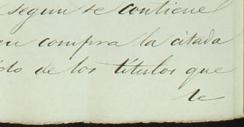 segun se contiene
en compra la citada
do de los títulos que
le